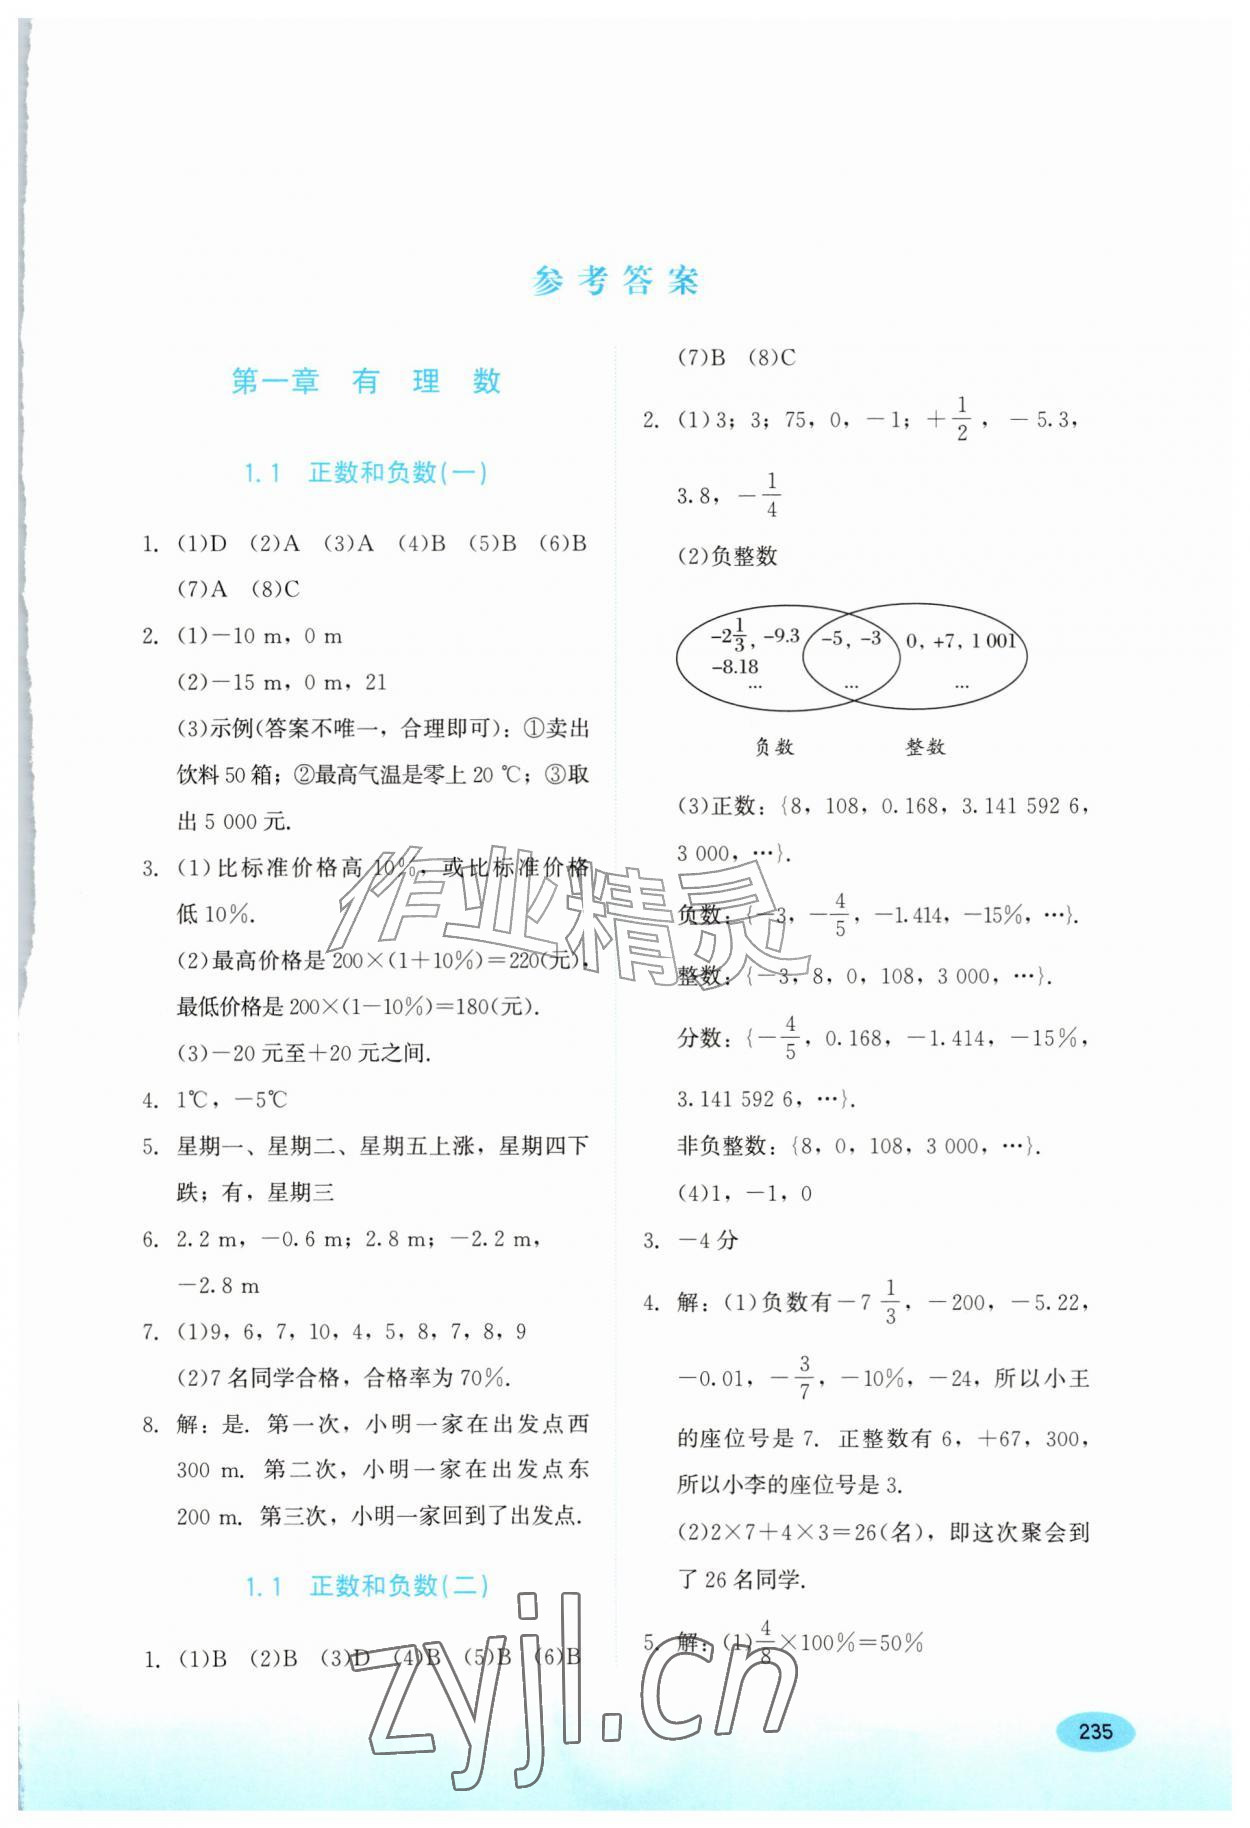 参考答案
第一章 有 理 数
1.1 正数和负数(一)
1. (1)D (2)A (3)A (4)B (5)B (6)B
(7)A (8)C
2. (1)－10 m，0 m
(2)－15 m，0 m，21
(3)示例(答案不唯一，合理即可)：①卖出
饮料 50 箱；②最高气温是零上 20 ℃；③取
出 5 000 元.
3. (1)比标准价格高 10%，或比标准价格
低 10%.
(2)最高价格是 200×(1＋10%)＝220(元)，
最低价格是 200×(1－10%)＝180(元).
(3)－20 元至＋20 元之间.
4. 1℃，－5℃
5. 星期一、星期二、星期五上涨，星期四下
跌；有，星期三
6. 2.2 m，－0.6 m；2.8 m；－2.2 m，
－2.8 m
7. (1)9，6，7，10，4，5，8，7，8，9
(2)7 名同学合格，合格率为 70%.
8. 解：是. 第一次，小明一家在出发点西
300 m. 第二次，小明一家在出发点东
200 m. 第三次，小明一家回到了出发点.
1.1 正数和负数(二)
1. (1)B (2)B (3)D (4)B (5)B (6)B
(7)B (8)C
2. (1)3；3；75，0，－1；＋1/2，－5.3，
3.8，－1/4
(2)负整数
-2 1/3，-9.3 -5，-3 0，+7，1 001
-8.18
… … …
负数 整数
(3)正数：{8，108，0.168，3.141 592 6，
3 000，…}.
负数：{－3，－4/5，－1.414，－15%，…}.
整数：{－3，8，0，108，3 000，…}.
分数：{－4/5，0.168，－1.414，－15%，
3.141 592 6，…}.
非负整数：{8，0，108，3 000，…}.
(4)1，－1，0
3. －4 分
4. 解：(1)负数有－7 1/3，－200，－5.22，
－0.01，－3/7，－10%，－24，所以小王
的座位号是 7. 正整数有 6，＋67，300，
所以小李的座位号是 3.
(2)2×7＋4×3＝26(名)，即这次聚会到
了 26 名同学.
5. 解：(1)4/8×100%＝50%
235
作业精灵
zyjl.cn